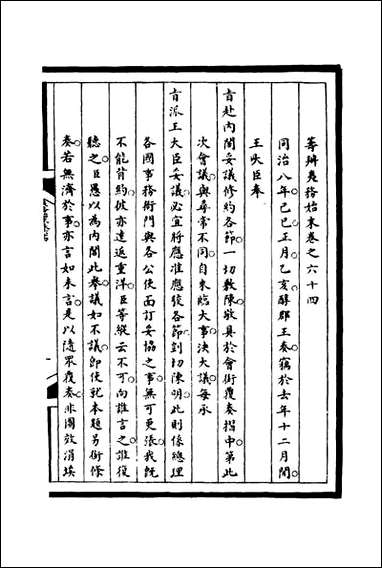 籌辦夷務始末卷之六十四
同治八年己巳正月乙亥醇郡王奏竊於去年十二月間
王大臣奉
旨赴內閣妥議修約各節一切敷陳敬具於會銜覆奏摺中第此
次會議與尋常不同自來臨大事決大議每承
旨派王大臣妥議必宜將應准應駁各節剴切陳明此則係總理
各國事務衙門與各公使面訂妥協之事無可更張我既
不能背約彼亦違返重洋臣等縱云不可向誰言之誰復
聽之臣愚以為內閣此舉議如不議即使就本題另銜條
奏若無濟於事亦言如未言是以隨眾覆奏非圖效涓埃